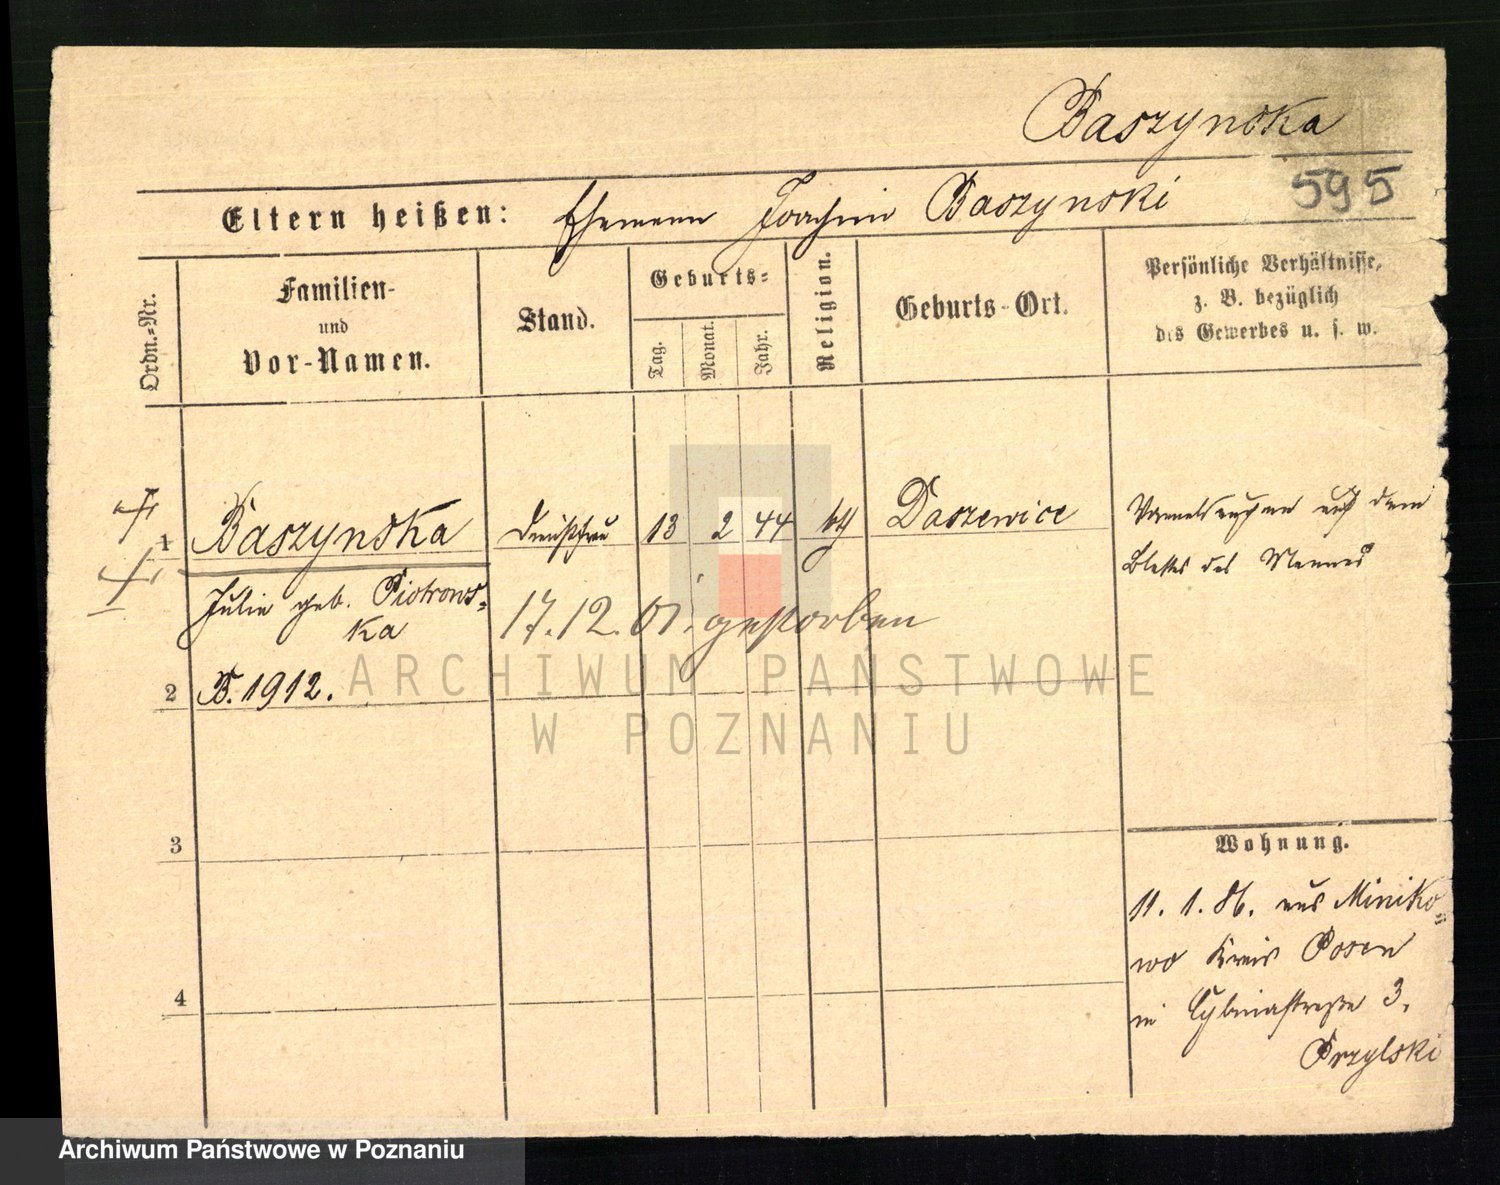 Baszynska
595
Eltern heißen: Ehemann Joachim Baszynski
Ordn.-Nr.
Familien-
und
Vor-Namen.
Stand.
Geburts-
Tag.
Monat.
Jahr.
Religion.
Geburts-Ort.
Persönliche Verhältnisse,
z. B. bezüglich
des Gewerbes u. s. w.
1 Baszynska 13 2 44 Daszewice
auf dem
Blattes des Mannes
Julie geb. Piotrows-
ka
17.12.01. gestorben
2 B. 1912.
ARCHIWUM PAŃSTWOWE
W POZNANIU
3
4
Wohnung.
11. 1. 86. aus Miniko-
wo Kreis Posen
in Cybinastraße 3.
Przylski
Archiwum Państwowe w Poznaniu